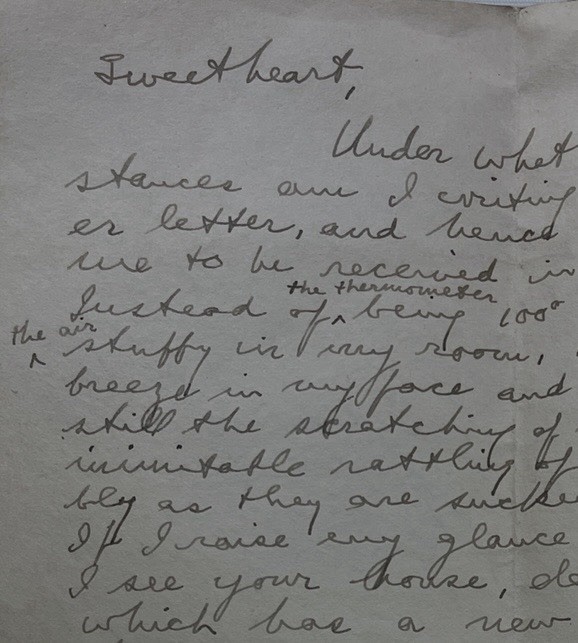 Sweetheart,
Under what
stances am I writing
er letter, and hence
me to be received in
the thermometer
Instead of ‸ being 100°
the air
‸ stuffy in my room,
breeze in my face and
still the scratching of
inimitable rattling of
bly as they are sucke
If I raise my glance
I see your house, de
which has a new